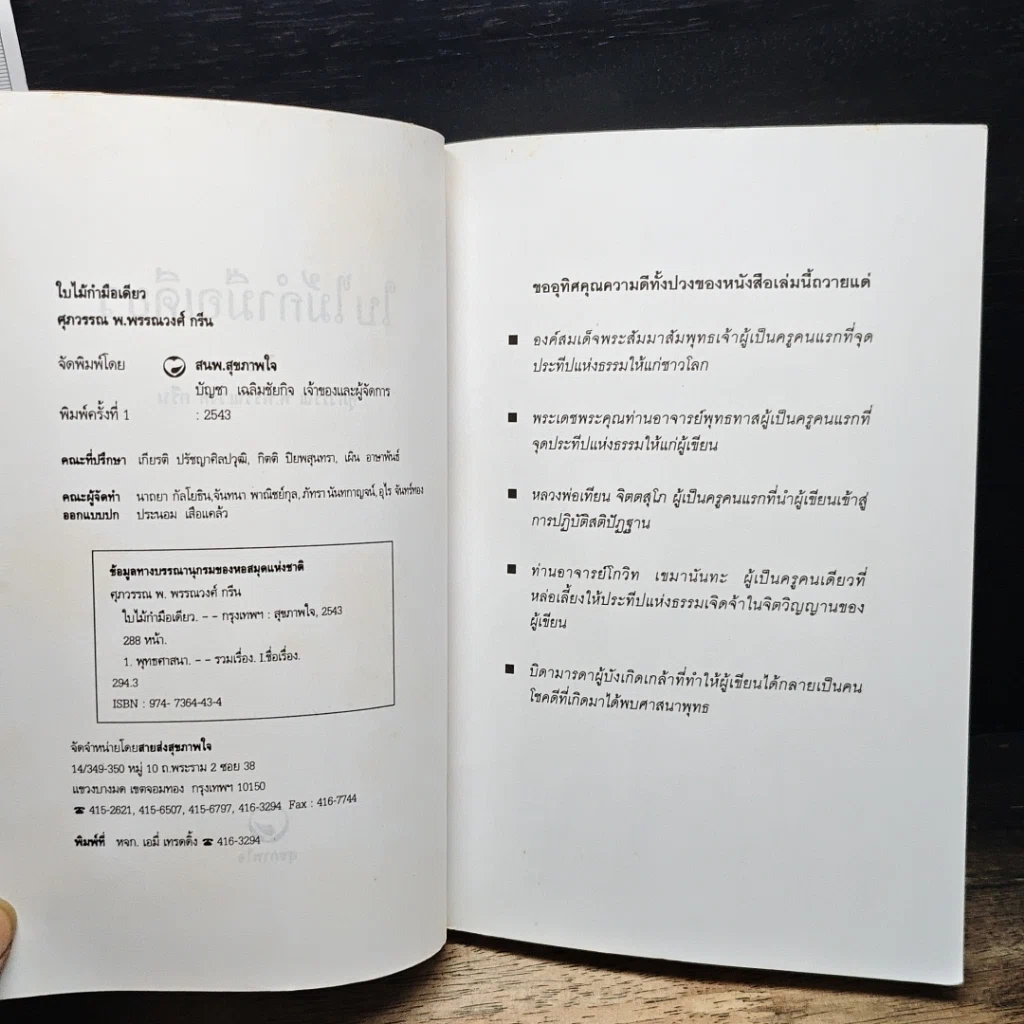 ใบไม้กำมือเดียว
ศุภวรรณ พ.พรรณวงศ์ กรีน
จัดพิมพ์โดย สนพ.สุขภาพใจ
บัญชา เฉลิมชัยกิจ เจ้าของและผู้จัดการ
พิมพ์ครั้งที่ 1 : 2543
คณะที่ปรึกษา เกียรติ ปรัชญาศิลปวุฒิ, กิตติ ปิยพสุนทรา, เผิน อาษาพันธ์
คณะผู้จัดทำ นาถยา กัลโยธิน,จันทนา พาณิชย์กุล,ภัทรา นันทกาญจน์,อุไร จันทร์ทอง
ออกแบบปก ประนอม เสือแคล้ว
ข้อมูลทางบรรณานุกรมของหอสมุดแห่งชาติ
ศุภวรรณ พ. พรรณวงศ์ กรีน
ใบไม้กำมือเดียว. -- กรุงเทพฯ : สุขภาพใจ, 2543
288 หน้า.
1. พุทธศาสนา. -- รวมเรื่อง. I.ชื่อเรื่อง.
294.3
ISBN : 974- 7364-43-4
จัดจำหน่ายโดยสายส่งสุขภาพใจ
14/349-350 หมู่ 10 ถ.พระราม 2 ซอย 38
แขวงบางมด เขตจอมทอง กรุงเทพฯ 10150
☎ 415-2621, 415-6507, 415-6797, 416-3294 Fax : 416-7744
พิมพ์ที่ หจก. เอมี่ เทรดดิ้ง ☎ 416-3294
ขออุทิศคุณความดีทั้งปวงของหนังสือเล่มนี้ถวายแด่
■ องค์สมเด็จพระสัมมาสัมพุทธเจ้าผู้เป็นครูคนแรกที่จุด
ประทีปแห่งธรรมให้แก่ชาวโลก
■ พระเดชพระคุณท่านอาจารย์พุทธทาสผู้เป็นครูคนแรกที่
จุดประทีปแห่งธรรมให้แก่ผู้เขียน
■ หลวงพ่อเทียน จิตตสุโภ ผู้เป็นครูคนแรกที่นำผู้เขียนเข้าสู่
การปฏิบัติสติปัฏฐาน
■ ท่านอาจารย์โกวิท เขมานันทะ ผู้เป็นครูคนเดียวที่
หล่อเลี้ยงให้ประทีปแห่งธรรมเจิดจ้าในจิตวิญญานของ
ผู้เขียน
■ บิดามารดาผู้บังเกิดเกล้าที่ทำให้ผู้เขียนได้กลายเป็นคน
โชคดีที่เกิดมาได้พบศาสนาพุทธ